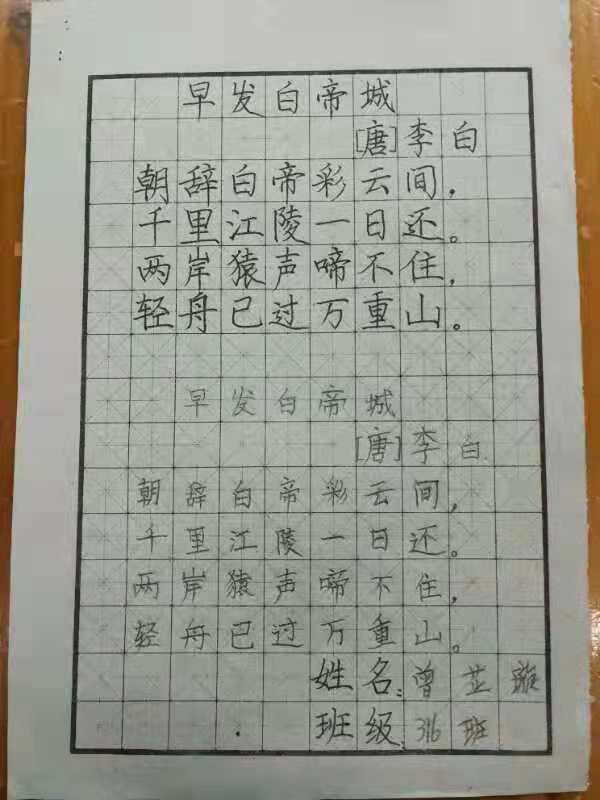 早发白帝城
[唐]李白
朝辞白帝彩云间，
千里江陵一日还。
两岸猿声啼不住，
轻舟已过万重山。
早发白帝城
[唐]李白
朝辞白帝彩云间，
千里江陵一日还。
两岸猿声啼不住，
轻舟已过万重山。
姓名：曾芷
班级：316班